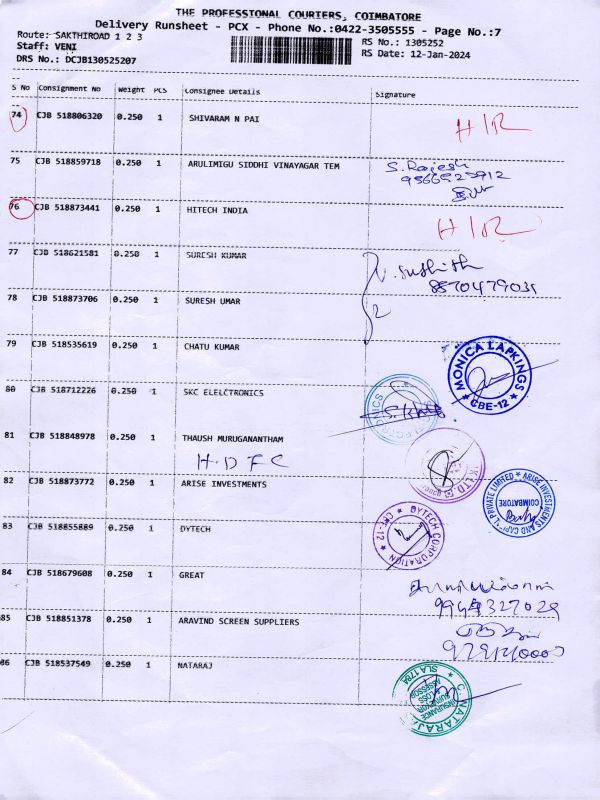 THE PROFESSIONAL COURIERS, COIMBATORE
Delivery Runsheet - PCX - Phone No.:0422-3505555 - Page No.:7
Route: SAKTHIROAD 1 2 3
RS No.: 1305252
Staff: VENI
RS Date: 12-Jan-2024
DRS No.: DCJB130525207
S No Consignment No Weight PCS Consignee Details Signature
74 CJB 518806320 0.250 1 SHIVARAM N PAI H/R
75 CJB 518859718 0.250 1 ARULIMIGU SIDDHI VINAYAGAR TEM S. Rajesh
9566525912
76 CJB 518873441 0.250 1 HITECH INDIA H/R
77 CJB 518621581 0.250 1 SURESH KUMAR
8870479039
78 CJB 518873706 0.250 1 SURESH UMAR
79 CJB 518535619 0.250 1 CHATU KUMAR
MONICA LAPKINGS
CBE-12
80 CJB 518712226 0.250 1 SKC ELELCTRONICS
81 CJB 518848978 0.250 1 THAUSH MURUGANANTHAM
H.D.F.C
82 CJB 518873772 0.250 1 ARISE INVESTMENTS
ARISE INVESTMENTS AND CAPITAL PRIVATE LIMITED
COIMBATORE
83 CJB 518855889 0.250 1 DYTECH
DYTECH CORPORATION
84 CJB 518679608 0.250 1 GREAT
9944327029
85 CJB 518851378 0.250 1 ARAVIND SCREEN SUPPLIERS
86 CJB 518537549 0.250 1 NATARAJ
C. NATARAJ
INSURANCE
SURVEYOR
& LOSS
ASSESSOR